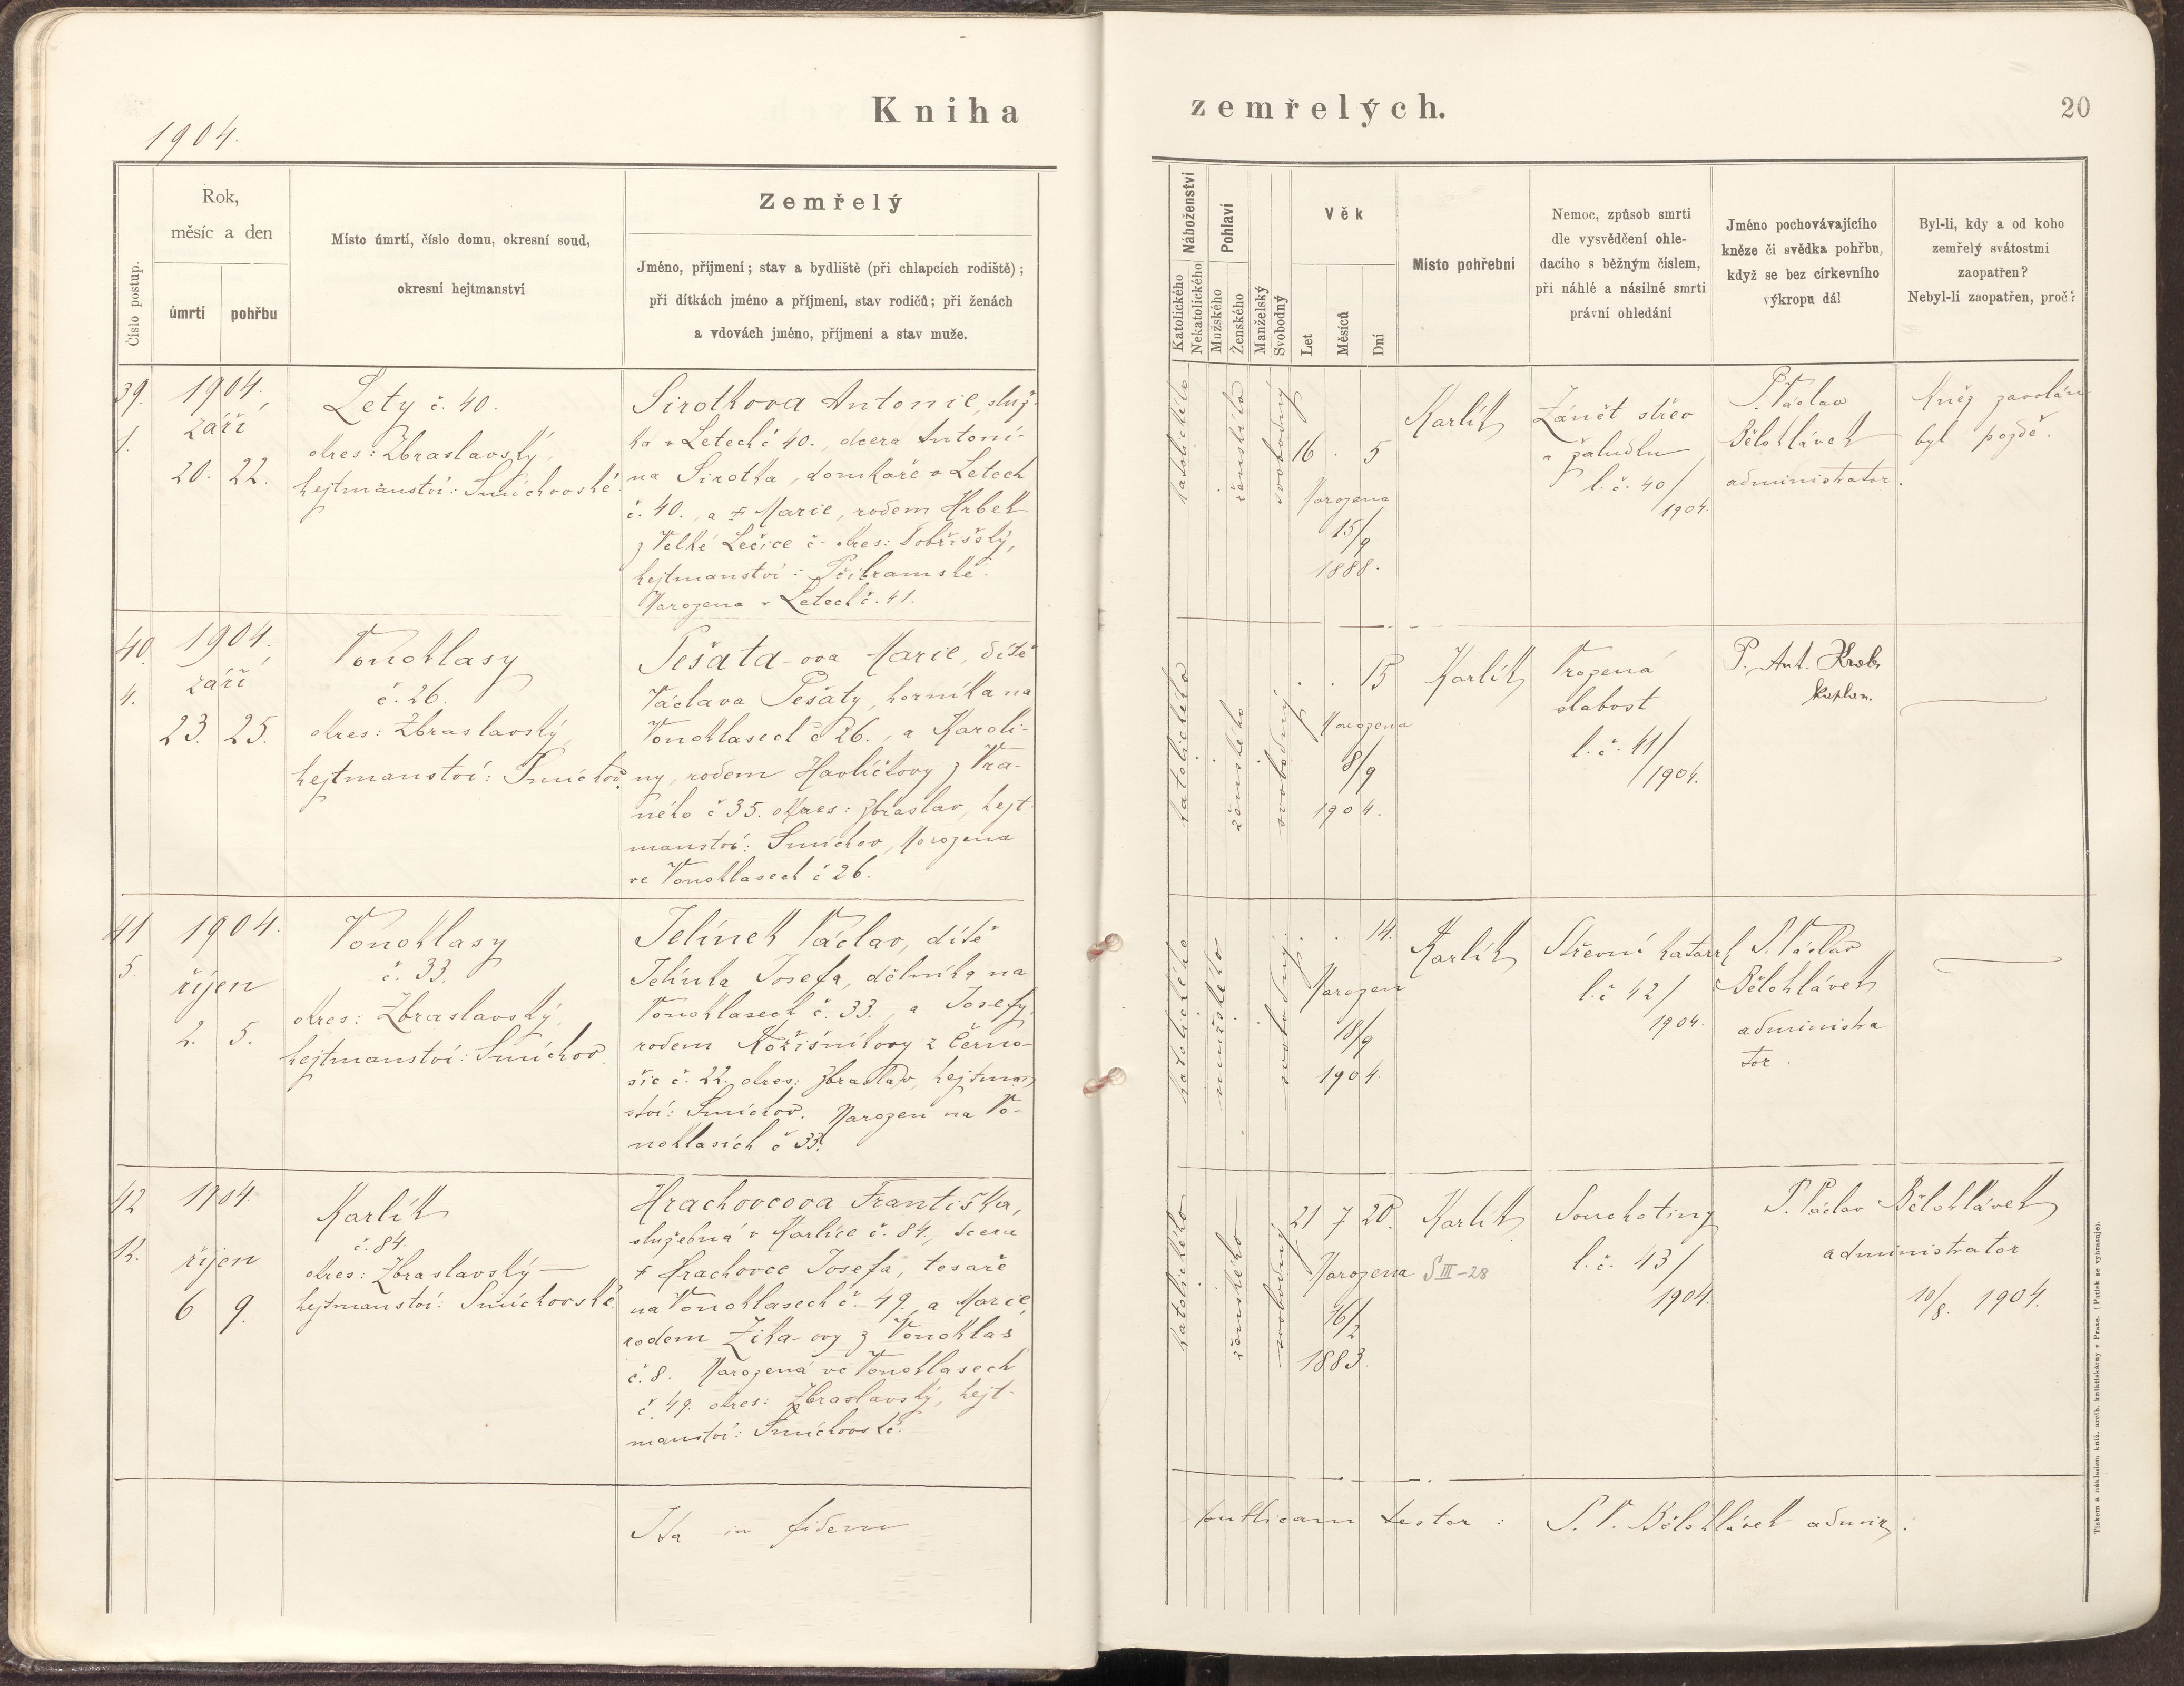 Kniha zemřelých.
20
1904.
Číslo postup.
Rok,
měsíc a den
úmrtí
pohřbu
Místo úmrtí, číslo domu, okresní soud,
okresní hejtmanství
Zemřelý
Jméno, příjmení; stav a bydliště (při chlapcích rodiště);
při dítkách jméno a příjmení, stav rodičů; při ženách
a vdovách jméno, příjmení a stav muže.
Náboženství
Katolického
Nekatolického
Pohlaví
Mužského
Ženského
Manželský
Svobodný
Věk
Let
Měsíců
Dní
Místo pohřební
Nemoc, způsob smrti
dle vysvědčení ohle-
dacího s běžným číslem,
při náhlé a násilné smrti
právní ohledání
Jméno pochovávajícího
kněze či svědka pohřbu,
když se bez církevního
výkropu dál
Byl-li, kdy a od koho
zemřelý svátostmi
zaopatřen?
Nebyl-li zaopatřen, proč?
39.
1.
1904.
září
20. 22.
Lety č. 40.
okres: Zbraslavský,
hejtmanství: Smíchovské
Sirotkova Antonie, služ-
ka v Letech č 40., dcera Antoní-
na Sirotka, domkaře v Letech
č. 40., a † Marie, rodem Hrbek
z Velké Lečice č. okres: Dobříšský,
hejtmanství: Příbramské.
Narozena v Letech č. 41.
katolického
ženského
svobodný
16 . 5
Narozena
15/9
1888.
Karlík
Zánět střev
a žaludku
l. č. 40/
1904.
P. Václav
Bělohlávek
administrator.
Kněz zavolán
byl pozdě.
40.
4.
1904.
září
23. 25.
Vonoklasy
č. 26.
okres: Zbraslavský,
hejtmanství: Smíchov.
Pešata-ova Marie, dítě
Václava Pešaty, horníka na
Vonoklasech č 26., a Karoli-
ny, rodem Havlíčkovy z Vra-
ného č 35. okres: Zbraslav, hejt-
manství: Smíchov, Narozena
ve Vonoklasech č 26.
katolického
ženského
svobodný
. . 15
Narozena
8/9
1904.
Karlík
Vrozená
slabost
l. č. 41/
1904.
P. Ant.
kaplan.
41
5.
1904.
říjen
2. 5.
Vonoklasy
č. 33.
okres: Zbraslavský,
hejtmanství: Smíchov.
Jelínek Václav, dítě
Jelínka Josefa, dělníka na
Vonoklasech č. 33., a Josefy,
rodem Kožišníkovy z Černo-
šic č. 22. okres: Zbraslav, hejtman-
ství: Smíchov. Narozen na Vo-
noklasích č 33.
katolického
mužského
svobodný.
. . 14.
Narozen
18/9
1904.
Karlík
Střevní katarrh
l. č 42/
1904.
P. Václav
Bělohlávek
administra
tor.
42
12.
1904.
říjen
6 9.
Karlík
č. 84.
okres: Zbraslavský —
hejtmanství: Smíchovské.
Hrachovcova Františka,
služebná v Karlíce č. 84., dcera
† Hrachovce Josefa, tesaře
na Vonoklasech č. 49., a Marie,
rodem Zika-ovy z Vonoklas
č. 8. Narozená ve Vonoklasech
č. 49. okres: Zbraslavský, hejt-
manství: Smíchovské.
katolického
ženského
svobodný
21 7 20.
Narozena
16/2
1883.
Karlík
S III-28
Souchotiny
l. č. 43/
1904.
P. Václav Bělohlávek
administrator
10/8. 1904.
Ita in fidem
publicam testor: P. V. Bělohlávek admin.
Tiskem a nákladem kníž. arcib. knihtiskárny v Praze. (Patisk se vyhrazuje).